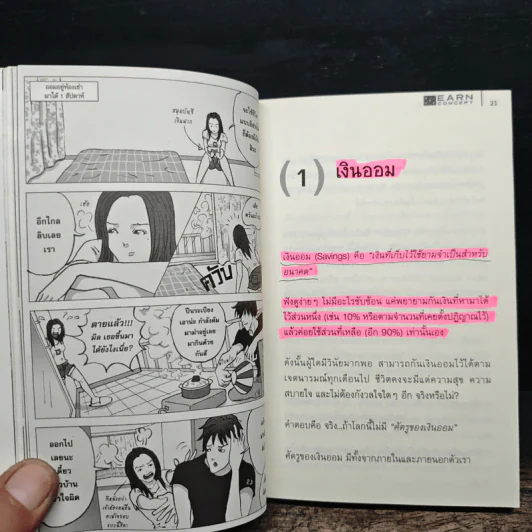 ออมอยู่ห้องเช่า
มาได้ 1 สัปดาห์
สมุดบัญชี
เงินฝาก
อีกไกล
ลิบเลย
เรา
ควับ
ตายแล้ว!!!
มืด เธอขึ้นมา
ได้ยังไงเนี่ย?
ออกไป
เลยนะ
EARN
CONCEPT
21
(1) เงินออม
เงินออม (Savings) คือ "เงินที่เก็บไว้ใช้ยามจำเป็นสำหรับ
อนาคต"
ฟังดูง่ายๆ ไม่มีอะไรซับซ้อน แค่พยายามกันเงินที่หามาได้
ไว้ส่วนหนึ่ง (เช่น 10% หรือตามจำนวนที่เคยตั้งปฏิญาณไว้)
แล้วค่อยใช้ส่วนที่เหลือ (อีก 90%) เท่านั้นเอง
ดังนั้นผู้ใดมีวินัยมากพอ สามารถกันเงินออมไว้ได้ตาม
เจตนารมณ์ทุกเดือนไป ชีวิตคงจะมีแต่ความสุข ความ
สบายใจ และไม่ต้องกังวลใจใดๆ อีก จริงหรือไม่?
คำตอบคือ จริง...ถ้าโลกนี้ไม่มี "ศัตรูของเงินออม"
ศัตรูของเงินออม มีทั้งจากภายในและภายนอกตัวเรา